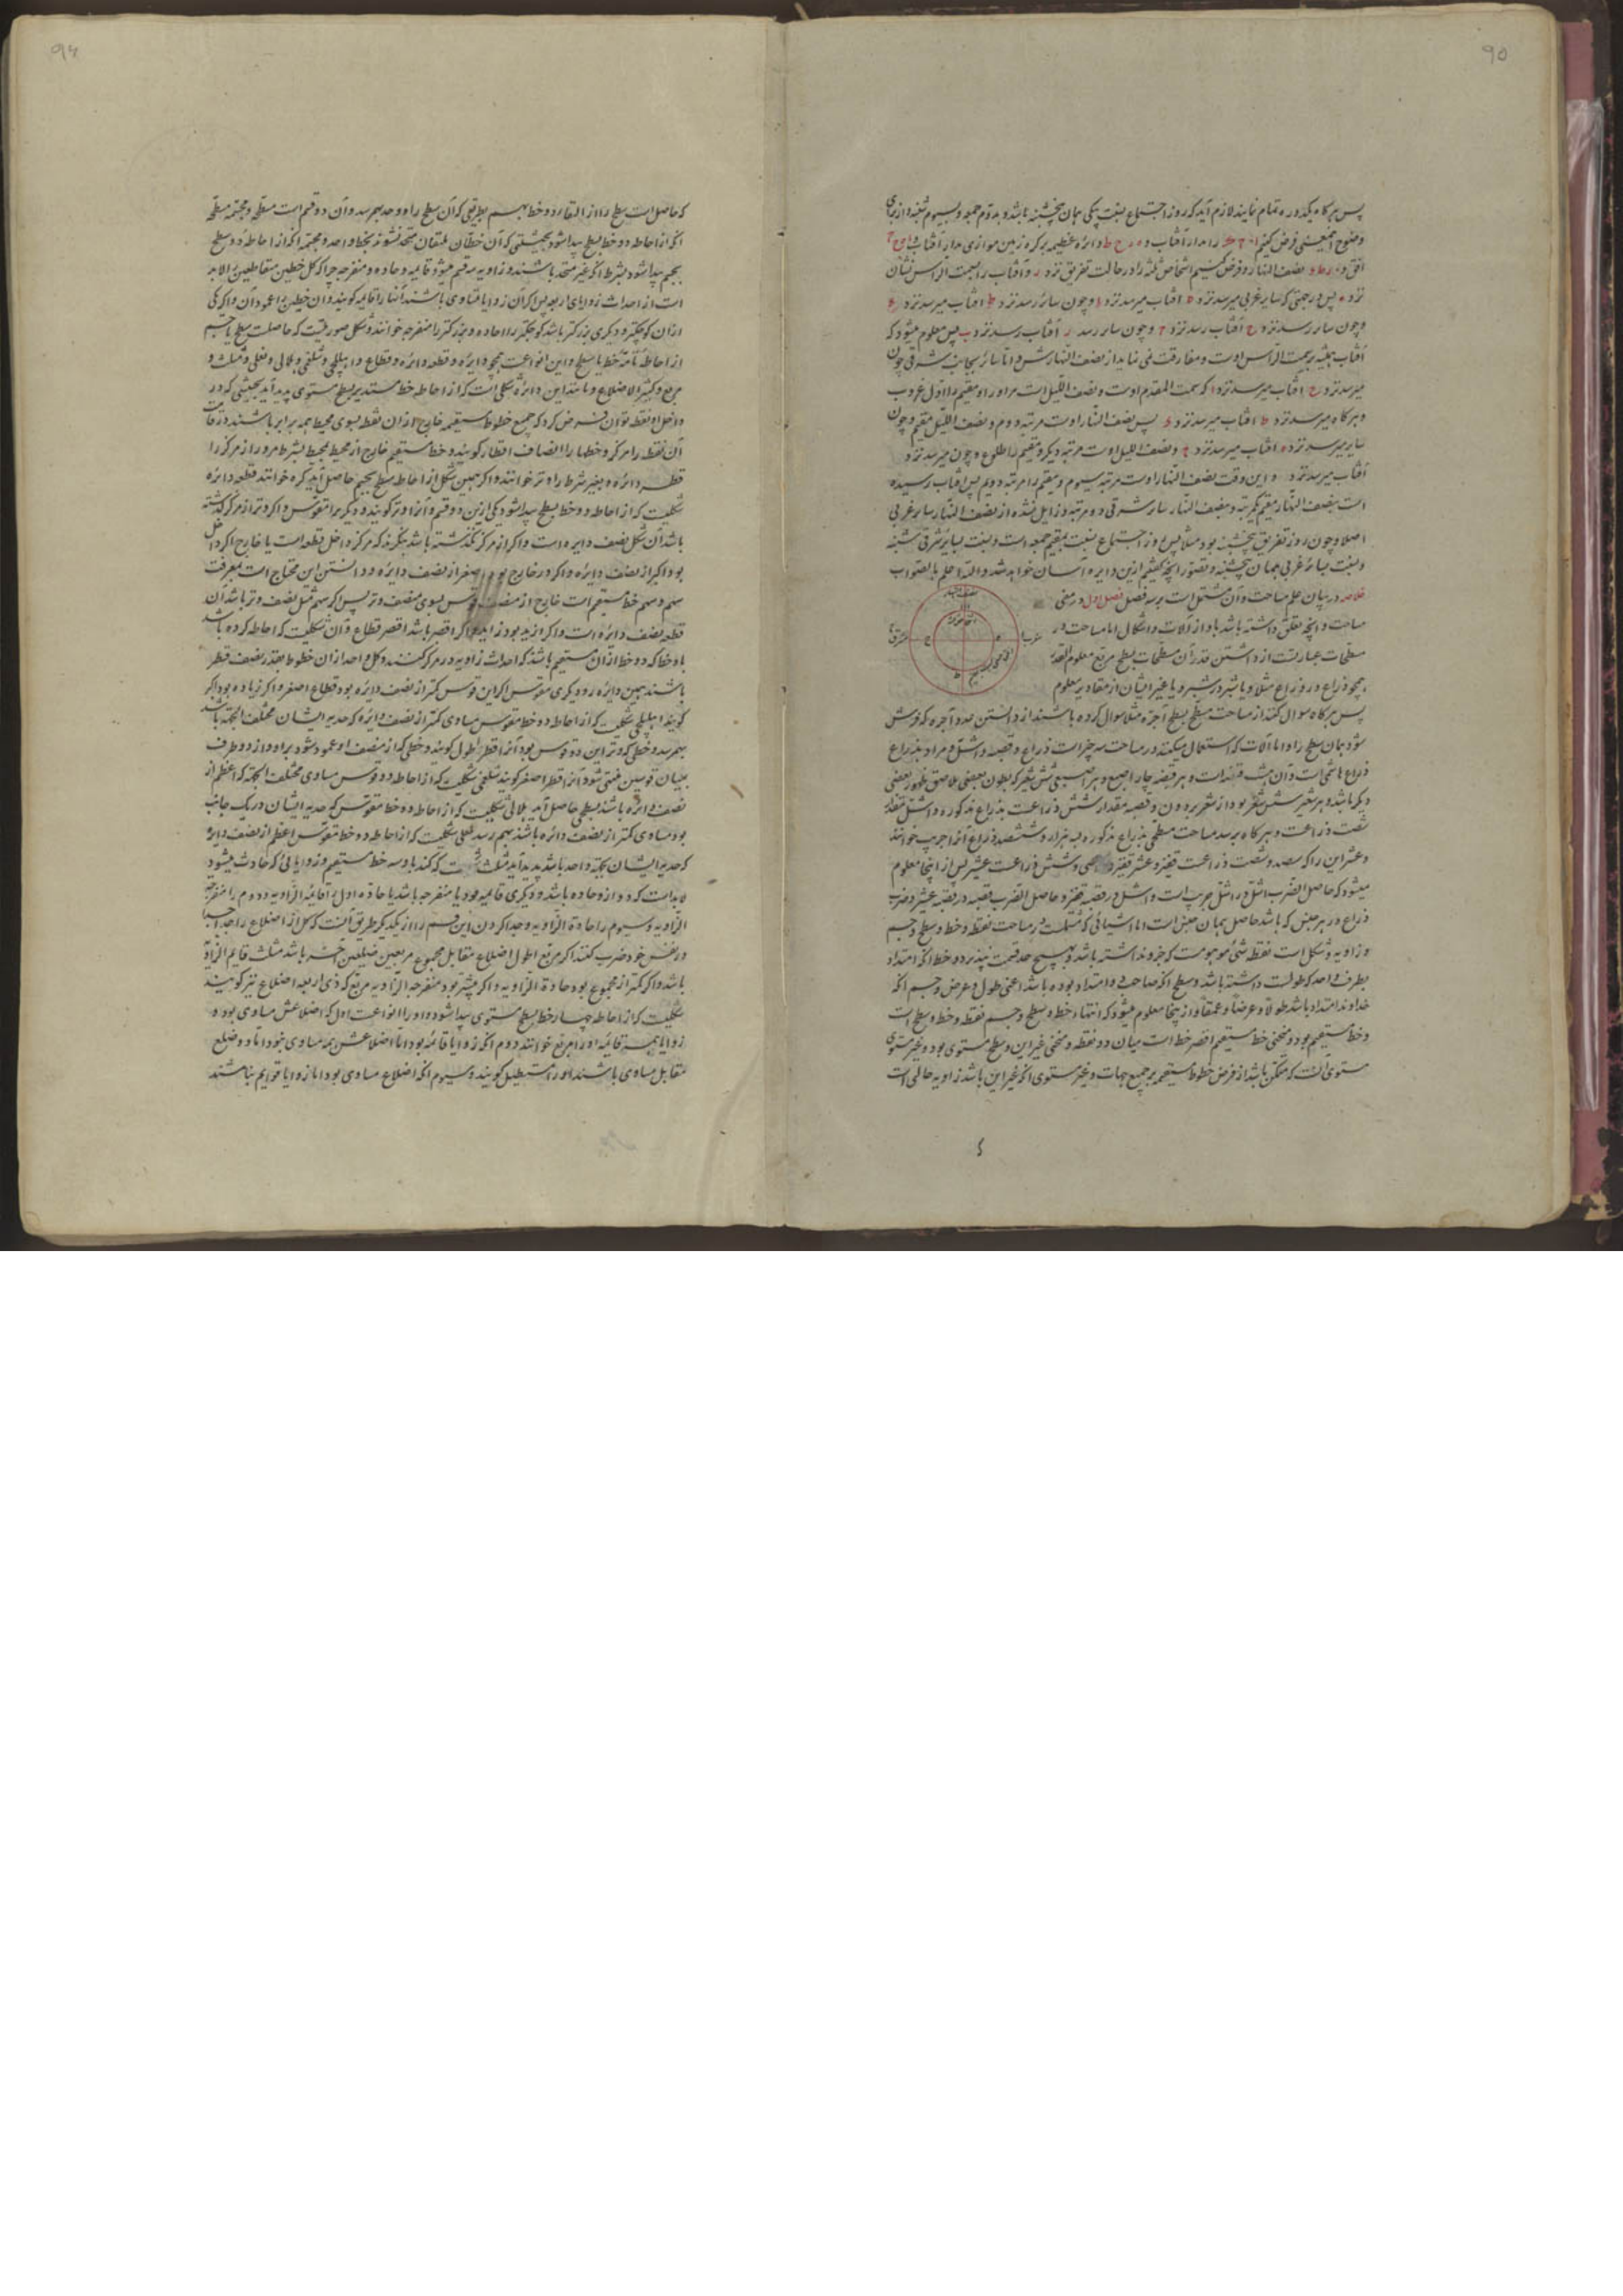 ۹۵
پس هرگاه یکدوره تمام نمایند لازم آید که روز اجتماع بنسبت یکی همان پنجشنبه باشد و بدوم جمعه و بسیوم شنبه و از برای
وضوح اینمعنی فرض کنیم را مدار آفتاب و دائره عظیمه بر کره زمین موازی مدار آفتاب
افق و نصف النهار و فرض کنیم اشخاص ثلثه را در حالت تفریق نزد و آفتاب را بسمت الراس نشان
نزد پس در حینی که سایر غربی میرسد نزد آفتاب میرسد نزد و چون سائر رسد نزد ط آفتاب میرسد نزد
و چون سایر رسد نزد ح آفتاب رسد نزد و چون سایر رسد آفتاب رسد نزد پس معلوم میشود که
آفتاب همیشه بر سمت الرأس اوست و مفارقت نمی نماید از نصف النهارش و اما سائر بجانب شرقی چون
میرسد نزد ح آفتاب میرسد نزد که سمت القدم اوست و نصف اللیل است مر او را و مقیم را اول غروب
و هرگاه میرسد نزد ط آفتاب میرسد نزد پس نصف النهار اوست مرتبه دوم و نصف اللیل مقیم و چون
سایر میرسد نزد آفتاب میرسد نزد و نصف اللیل اوست مرتبه دیگر و مقیم را طلوع و چون میرسد نزد
آفتاب میرسد نزد و این وقت نصف النهار اوست مرتبه سیوم و مقیم را مرتبه دویم پس آفتاب رسیده
است بنصف النهار مقیم یکمرتبه و بنصف النهار سایر شرقی دو مرتبه و زایل نشده از نصف النهار سایر غربی
اصلا و چون روز تفریق پنجشنبه بود مثلا پس روز اجتماع بنسبت بمقیم جمعه است و بنسبت بسایر شرقی شنبه
و بنسبت بسائر غربی همان پنجشنبه و تصور آنچه گفتیم ازین دایره آسان خواهد شد والله اعلم بالصواب
خلاصه در بیان علم مساحت و آن مشتمل است بر سه فصل فصل اول در معنی
مساحت و آنچه تعلق داشته باشد باو از آلات و اشکال اما مساحت در
سطحات عبارتست از دانستن قدر آن مسطحات بسطح مربع معلوم القدر
همچو ذراع در ذراع مثلا و یا شبر در شبر و یا غیر ایشان از مقادیر معلوم
پس هرگاه سوال کنند از مساحت سطح بسطح آجره مثلا سوال کرده باشند از دانستن عدد آجره که فرش
شود بمان سطح را و اما آلات که استعمال میکنند در مساحت سه چیز است ذراع و قصبه و اشل و مراد بذراع
ذراع هاشمی است و آن هشت قبضه است و هر قبضه چار اصبع و هر اصبعی شش شعیر که بطون بعضی ملاصق ظهور بعضی
دیگر باشد و هر شعیر شش شعر بود از شعر برذون و قصبه بمقدار شش ذراعست بذراع مذکوره و اشل بمقدار
شصت ذراعست و هرگاه برسد مساحت سطحی بذراع مذکوره بسه هزار و ششصد ذراع آنرا جریب خوانند
و عشر این را که سیصد و شصت ذراعست قفیز و عشر قفیز را سی و شش ذراعست عشیر پس از اینجا معلوم
میشود که حاصل الضرب اشل در اشل جریب است و اشل در قصبه قفیز و حاصل الضرب قصبه در قصبه عشیر و ضرب
ذراع در هر جنس که باشد حاصل بهمان جنس است اما اشیائی که مستعملست در مساحت نقطه و خط و سطح و جسم
و زاویه و شکل است نقطه شئ موهومست که جزو نداشته باشد و بهیچ حد قسمت نپذیرد و خط آنکه امتداد
بطرف واحد که طولست داشته باشد و سطح آنکه صاحب دو امتداد بوده باشد اعنی طول و عرض و جسم آنکه
خداوند امتداد باشد طولا و عرضا و عمقا و از اینجا معلوم میشود که انتهاء خط و سطح و جسم نقطه و خط و سطح است
و خط مستقیم بود و منحنی خط مستقیم اقصر خط است میان دو نقطه و منحنی غیر این و سطح مستوی بود و غیر مستوی
مستوی آنست که ممکن باشد از فرض خطوط مستقیمه بر جمیع جهات و غیر مستوی آنکه غیر این باشد زاویه حالی است
۹۶
که حاصل است سطح را از التقاء دو خط بهم بطریقی که آن سطح را و حد بهم رسد و آن دو قسم است مسطحه و مجسمه مسطحه
آنکه از احاطه دو خط بسطح پیدا شود بحیثیتی که آن خطان ملتقیان متحد نشوند بخط واحد و مجسمه آنکه از احاطه دو سطح
بجسم پیدا شود بشرط آنکه غیر متحد باشند و زاویه سه قسم میشود قایمه و حاده و منفرجه چرا که کل خطین متقاطعین را لابد
است از احداث زوایای اربعه پس اگر آن زوایا متساوی باشند آنها را قایمه گویند و آن خطین را عمود آن و اگر یکی
از آن کوچکتر و دیگری بزرگتر باشد کوچکتر را حاده و بزرگتر را منفرجه خوانند و شکل صورتیست که حاصلست سطح یا جسم
از احاطه تامه خط یا سطح و این انواعست همچو دایره و قطعه دائره و قطاع و اهلیلجی و شلغمی و هلالی و نعلی و مثلث و
مربع و کثیر الاضلاع و مانند این دائره شکلی است که از احاطه خط مستدیر بسطح مستوی پدید آید بحیثیتی که در
داخل او نقطه توان فرض کرد که جمیع خطوط مستقیمه خارج از آن نقطه بسوی محیط همه برابر باشند در قامت
آن نقطه را مرکز و خطها را انصاف اقطار گویند و خط مستقیم خارج از محیط بمحیط بشرط مرور از مرکز را
قطر دائره و بغیر شرط را وتر خوانند و اگر همین شکل از احاطه سطح بجسم حاصل آید کره خوانند قطعه دائره
شکلیست که از احاطه دو خط بسطح پیدا شود یکی ازین دو قسم و آنرا وتر گویند و دیگر را متقوس و اگر وتر از مرکز گذشته
باشد آن شکل نصف دایره است و اگر از مرکز نگذشته باشد بنگرند که مرکز داخل قطعه است یا خارج اگر داخل
بود اکبر از نصف دایره و اگر در خارج بود اصغر از نصف دایره و دانستن این محتاج است بمعرفت
سهم و سهم خط مستقیم است خارج از منصف قوس بسوی منصف وتر پس اگر سهم مثل نصف وتر باشد آن
قطعه نصف دائره است و اگر ازید بود زاید و اگر اقصر باشد اقصر قطاع و آن شکلیست که احاطه کرده باشد
باو خطا که دو خط از آن مستقیم باشد که احداث زاویه در مرکز کنند و کل واحد از آن خطوط بقدر نصف قطر
باشند بهمین دایره و دیگری متقوس اگر این قوس کمتر از نصف دایره بود قطاع اصغر و اگر زیاده بود اکبر
گویند اهلیلجی شکلیست که از احاطه دو خط متقوس مساوی کمتر از نصف دایره که حدبه ایشان مختلف الجهة باشد
بهم رسد و خطی که وتر این دو قوس بود آنرا قطر اطول گویند و خطی که از منصف او عمود شود بر او و از دو طرف
بمیان قوسین منتهی شود آنرا قطر اصغر گویند شلغمی شکلیست که از احاطه دو قوس مساوی مختلف الجهة که اعظم از
نصف دائره باشند بسطحی حاصل آید هلالی شکلیست که از احاطه دو خط متقوس که حدبه ایشان در یک جانب
بود مساوی کمتر از نصف دائره باشند بهم رسد نعلی شکلیست که از احاطه دو خط متقوس اعظم از نصف دایره
که حدبه ایشان بجهة واحد باشد پدید آید مثلث که کنند باو سه خط مستقیم و زوایائی که حادث میشود
لابد است که دو از او حاده باشد و دیگری قایمه بود یا منفرجه باشد یا حاده اول را قائمة الزاویه و دوم را منفرجة
الزاویه و سیوم را حادة الزاویه و جدا کردن این قسم را از یکدیگر طریق آنست که کل از اضلاع را جدا جدا
در نفس خود ضرب کنند اگر مربع اطول اضلاع مقابل مجموع مربعین ضلعین آخر باشد مثلث قایم الزاویه
باشد و اگر کمتر از مجموع بود حادة الزاویه و اگر بیشتر بود منفرجه الزاویه مربع که ذی اربعه اضلاع نیز گویند
شکلیست که از احاطه چهار خط بسطح مستوی پیدا شود و او را انواعست اول که اضلاعش مساوی بود و
زوایا همه قائمه او را مربع خوانند دوم آنکه زوایا قائمه بود اما اضلاعش همه مساوی نبود اما دو ضلع
مقابل مساوی باشند او را مستطیل گویند و سیوم آنکه اضلاع مساوی بود اما زوایا قوایم نباشند